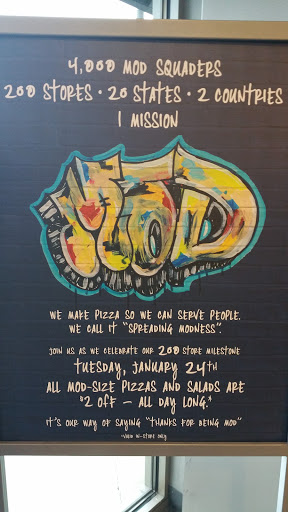 4,000 MOD SQUADERS
200 STORES · 20 STATES · 2 COUNTRIES
1 MISSION
MOD
WE MAKE PIZZA SO WE CAN SERVE PEOPLE.
WE CALL IT "SPREADING MODNESS".
JOIN US AS WE CELEBRATE OUR 200 STORE MILESTONE
TUESDAY, JANUARY 24TH
ALL MOD-SIZE PIZZAS AND SALADS ARE
$2 OFF – ALL DAY LONG.*
IT'S OUR WAY OF SAYING "THANKS FOR BEING MOD"
*VALID IN-STORE ONLY